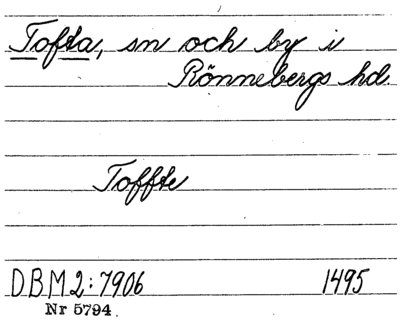 Tofta, sn och by i
Rönnebergs hd.
Toffte
DBM 2:7906 1495
Nr 5794.